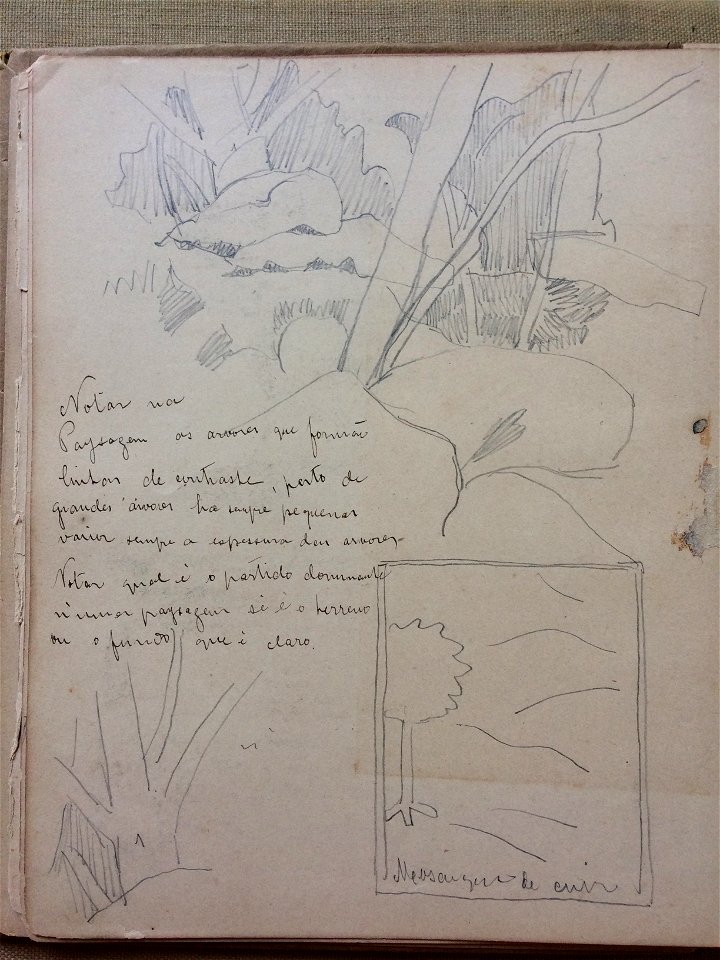 Notar na
Paysagem as arvores que formão
linhas de contraste, perto de
grandes árvores ha sempre pequenas
variar sempre a espessura das arvores
Notar qual é o partido dominante
n'uma paysagem si é o terreno
ou o fundo) que é claro.
de cuir